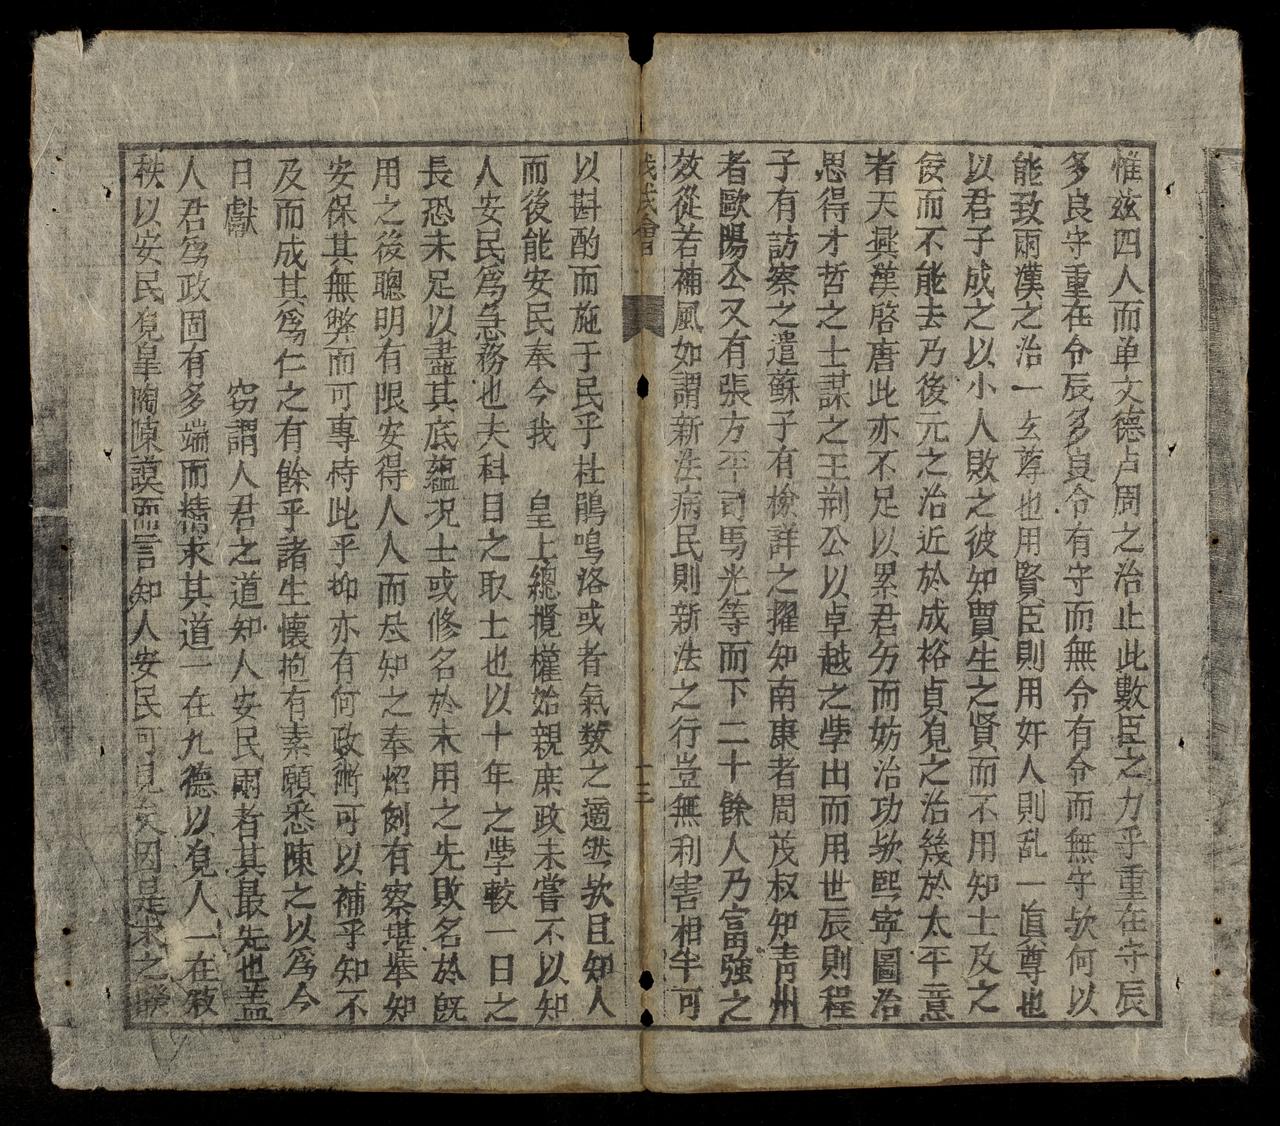 惟玆四人而单文德占周之治止此數臣之力乎重在守辰
多良守重在令辰多良令有守而無令有令而無守欤何以
能致两漢之治一玄尊也用賢臣則用奸人則乱一值尊也
以君子成之以小人敗之彼知賈生之賢而不用知士及之
侫而不能去乃後元之治近於成裕貞覌之治幾於太平意
者天興漢啓唐此亦不足以累君身而妨治功欤熙寧圖治
思得才哲之士謀之王荆公以卓越之學出而用世辰則程
子有訪察之遣蘇子有檢詳之擢知南康者周茂叔知青州
者歐陽公又有張方平司馬光等而下二十餘人乃富強之
效從若補風如謂新法病民則新法之行豈無利害相半可
十三
以斟酌而施于民乎杜鵑鳴洛或者氣数之適然欤且知人
而後能安民奉今我　皇上總攬權始親庶政未嘗不以知
人安民爲急務也夫科目之取士也以十年之學較一日之
長恐未足以盡其底蘊况士或修名於未用之先敗名於旣
用之後聰明有限安得人人而尽知之奉炤例有察堪奉知
安保其無弊而可專恃此乎抑亦有何政術可以補乎知不
及而成其爲仁之有餘乎諸生懷抱有素願悉陳之以爲今
日獻　　窃謂人君之道知人安民兩者其最先也盖
人君爲政固有多端而精求其道一在九德以覌人一在敘
秩以安民覌皋陶陳謨而言知人安民可見矣因是求之